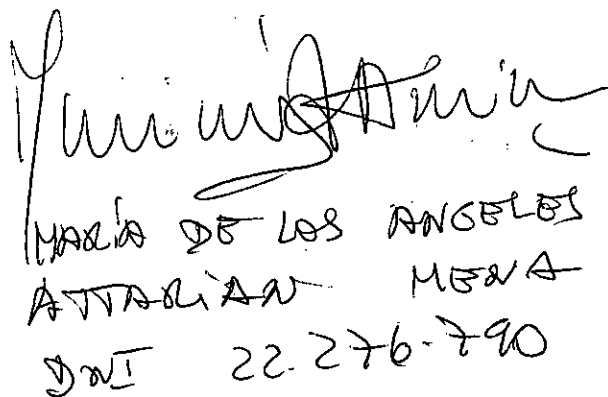 MARÍA DE LOS ANGELES
ATTARIAN MENA
DNI 22.276.790